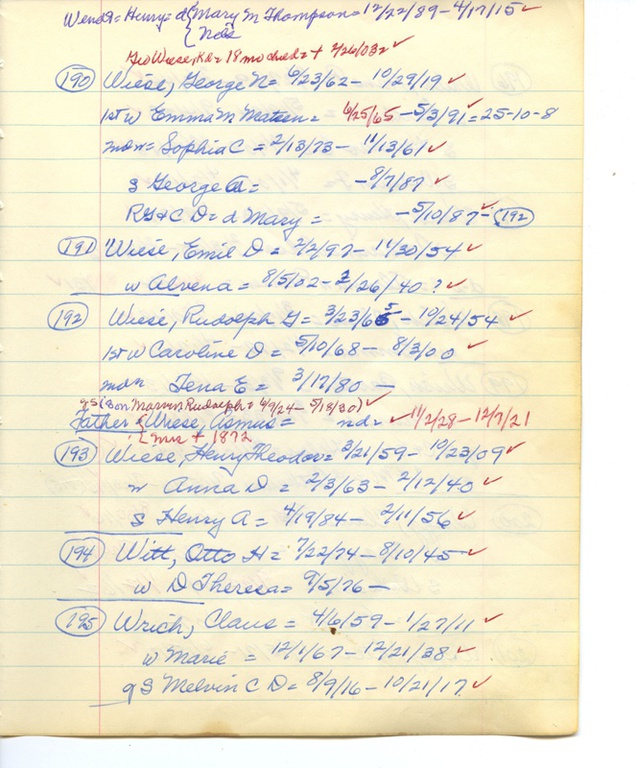 Wendt = Henry = d { Mary M Thompson = 12/22/89 - 4/17/15 ✓
{ Nola
Geo Wiese, Kd = 18 mo child = + 2/26/03 ✓
190 Wiese, George N = 6/23/62 - 10/29/19 ✓
1st w Emma M Matzen = 6/25/65 - 5/3/91 ✓ = 25-10-8
mdn = Sophia C = 2/13/73 - 11/13/61 ✓
s George A = - 8/7/87 ✓
RG + C D = d Mary = - 5/10/87 ✓ - 192
191 Wiese, Emil D = 2/2/97 - 11/30/54 ✓
w Alvena = 8/5/02 - 2/26/40 ? ✓
192 Wiese, Rudolph G = 3/23/65 - 10/24/54 ✓
1st w Caroline D = 5/10/68 - 8/3/00 ✓
mdn Tena E = 3/17/80 -
gs (son Marvin Rudolph = 4/9/24 - 5/18/30) ✓
Father { Wiese, Asmus = nd = ✓ 11/2/28 - 12/7/21
{ Mrs + 1872
193 Wiese, Henry Theodor = 3/21/59 - 10/23/09 ✓
w Anna D = 2/3/63 - 2/12/40 ✓
s Henry A = 4/19/84 - 2/11/56 ✓
194 Witt, Otto H = 7/22/74 - 8/10/45 ✓
w D Theresa = 9/5/76 -
195 Wrich, Claus = 4/6/59 - 1/27/11 ✓
w Marie = 12/1/67 - 12/21/38 ✓
gs Melvin C D = 8/9/16 - 10/21/17 ✓